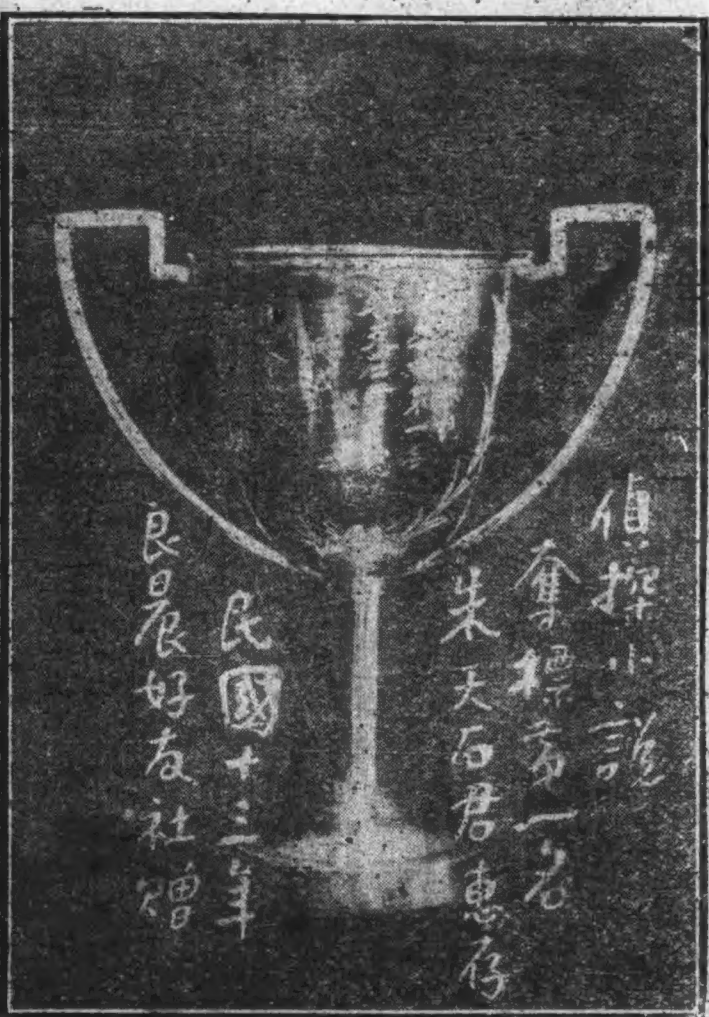 偵探小說
奪標第一名
朱天石君惠存
民國十三年
良晨好友社贈